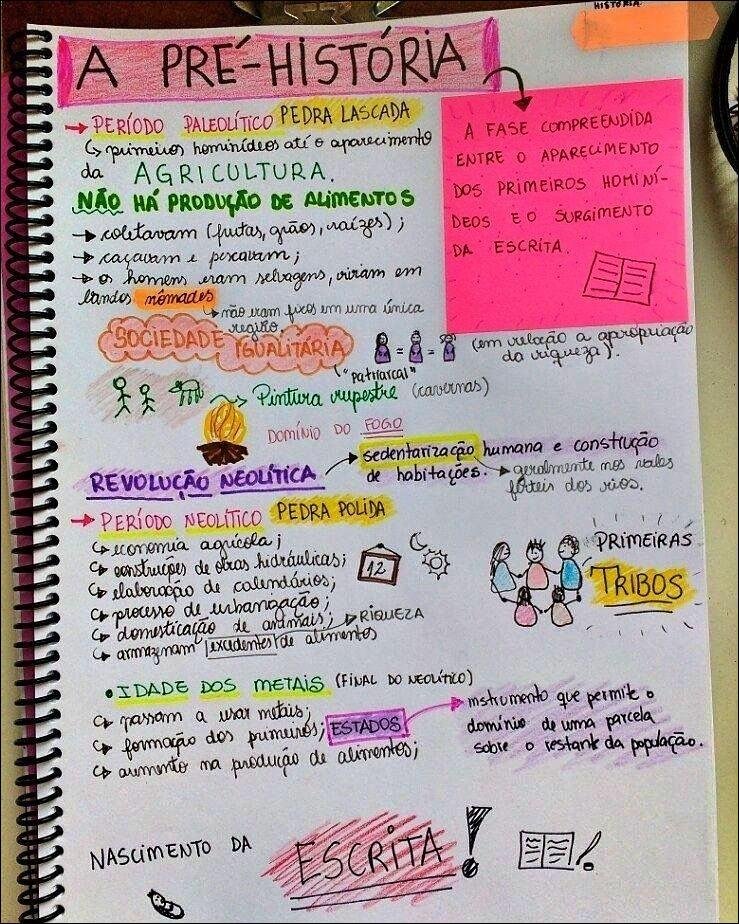 HISTÓRIA
A PRÉ-HISTÓRIA
A FASE COMPREENDIDA
ENTRE O APARECIMENTO
DOS PRIMEIROS HOMINÍ-
DEOS E O SURGIMENTO
DA ESCRITA.
→ PERÍODO PALEOLÍTICO PEDRA LASCADA
↳ primeiros hominídeos até o aparecimento
da AGRICULTURA.
NÃO HÁ PRODUÇÃO DE ALIMENTOS
→ coletavam (frutas, grãos, raízes);
→ caçavam e pescavam;
→ os homens eram selvagens, viviam em
bandos nômades
↳ não eram fixos em uma única
região.
SOCIEDADE IGUALITÁRIA
= = (em relação a apropriação
da riqueza).
("patriarcal")
Pintura rupestre (cavernas)
DOMÍNIO DO FOGO
REVOLUÇÃO NEOLÍTICA → sedentarização humana e construção
de habitações. → geralmente nos vales
férteis dos rios.
→ PERÍODO NEOLÍTICO PEDRA POLIDA
↳ economia agrícola;
↳ construções de obras hidráulicas;
↳ elaboração de calendários;
↳ processo de urbanização;
↳ domesticação de animais;
↳ armazenam excedentes de alimentos
→ RIQUEZA
12
PRIMEIRAS
TRIBOS
• IDADE DOS METAIS (FINAL DO NEOLÍTICO)
↳ passam a usar metais;
↳ formação dos primeiros; ESTADOS
↳ aumento na produção de alimentos;
→ instrumento que permite o
domínio de uma parcela
sobre o restante da população.
NASCIMENTO DA ESCRITA!